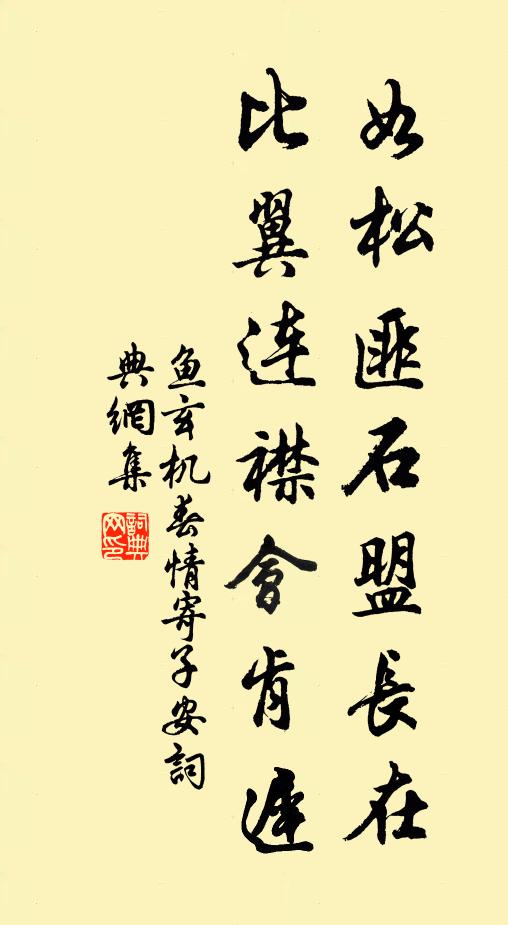 如松匪石盟長在
比翼連襟會肯遲
鱼玄机春情寄子安詞
典網集
詞典網印